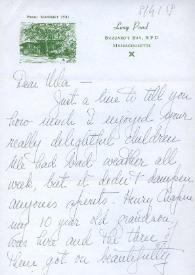 Long Pond
Buzzard's Bay, R.F.D.
Massachusetts
Dear Ulla —
Just a line to tell you
how much I enjoyed your
really delightful children
We had bad weather all
week, but it didn't dampen
anyone's spirits. Henry
my 10 year old grandson
was here and the three of
them got on beautifully